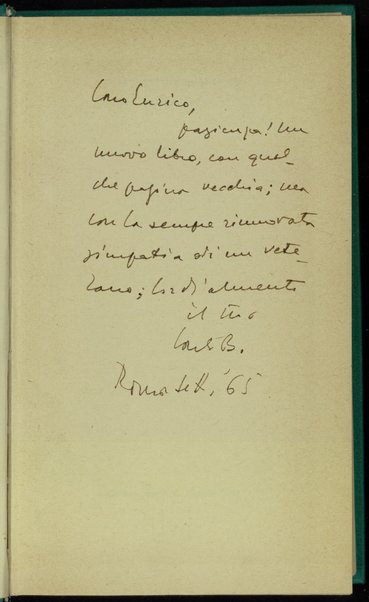 Caro Enrico,
pazienza! Un
nuovo libro, con qual-
che pagina vecchia; ma
con la sempre rinnovata
simpatia di un vete-
rano; cordialmente
il tuo
Carlo B.
Roma sett. '65